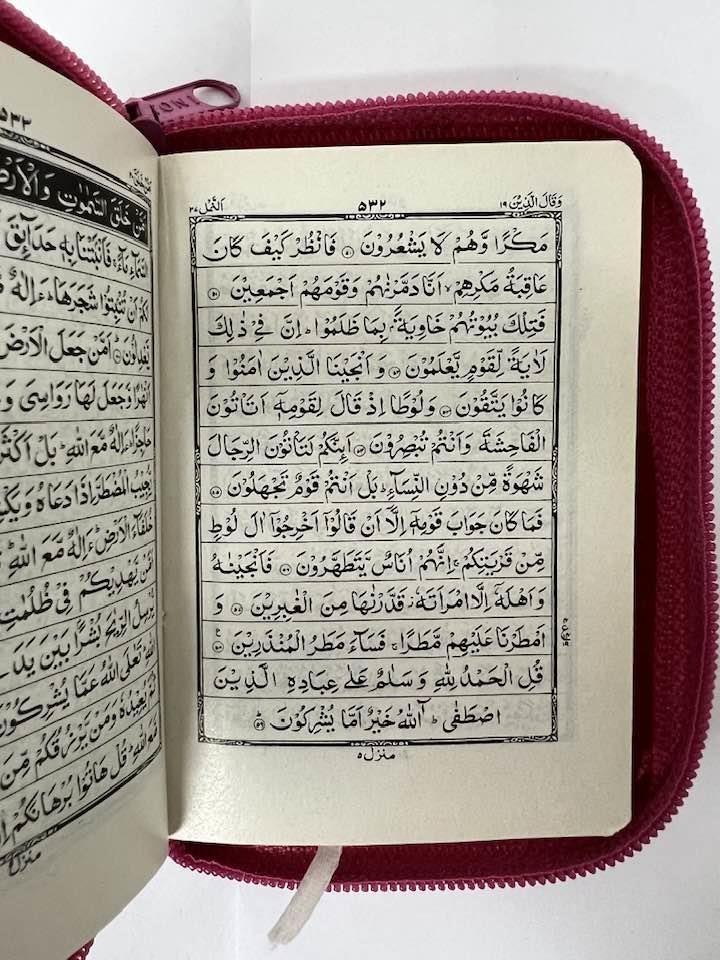 وَقَالَ الَّذِيْنَ ١٩
٥٣٢
اَلنَّمْل ٢٧
مَكْرًا وَّهُمْ لَا يَشْعُرُوْنَ ﴿٥٠﴾ فَانْظُرْ كَيْفَ كَانَ
عَاقِبَةُ مَكْرِهِمْ ۙ اَنَّا دَمَّرْنٰهُمْ وَقَوْمَهُمْ اَجْمَعِيْنَ ﴿٥١﴾
فَتِلْكَ بُيُوْتُهُمْ خَاوِيَةً ۢ بِمَا ظَلَمُوْا ؕ اِنَّ فِيْ ذٰلِكَ
لَاٰيَةً لِّقَوْمٍ يَّعْلَمُوْنَ ﴿٥٢﴾ وَ اَنْجَيْنَا الَّذِيْنَ اٰمَنُوْا وَ
كَانُوْا يَتَّقُوْنَ ﴿٥٣﴾ وَلُوْطًا اِذْ قَالَ لِقَوْمِهٖۤ اَتَاْتُوْنَ
الْفَاحِشَةَ وَاَنْتُمْ تُبْصِرُوْنَ ﴿٥٤﴾ اَئِنَّكُمْ لَتَاْتُوْنَ الرِّجَالَ
شَهْوَةً مِّنْ دُوْنِ النِّسَآءِ ؕ بَلْ اَنْتُمْ قَوْمٌ تَجْهَلُوْنَ ﴿٥٥﴾
فَمَا كَانَ جَوَابَ قَوْمِهٖۤ اِلَّاۤ اَنْ قَالُوْۤا اَخْرِجُوْۤا اٰلَ لُوْطٍ
مِّنْ قَرْيَتِكُمْ ۚ اِنَّهُمْ اُنَاسٌ يَّتَطَهَّرُوْنَ ﴿٥٦﴾ فَاَنْجَيْنٰهُ
وَ اَهْلَهٗۤ اِلَّا امْرَاَتَهٗ ؗ قَدَّرْنٰهَا مِنَ الْغٰبِرِيْنَ ﴿٥٧﴾ وَ
اَمْطَرْنَا عَلَيْهِمْ مَّطَرًا ۚ فَسَآءَ مَطَرُ الْمُنْذَرِيْنَ ﴿٥٨﴾ ع
قُلِ الْحَمْدُ لِلّٰهِ وَ سَلٰمٌ عَلٰى عِبَادِهِ الَّذِيْنَ
اصْطَفٰى ؕ آٰللّٰهُ خَيْرٌ اَمَّا يُشْرِكُوْنَ ﴿٥٩﴾
منزل ٥
٥٣٣
اَمَّنْ خَلَقَ السَّمٰوٰتِ وَ الْاَرْضَ
السَّمَآءِ مَآءً ۚ فَاَنْۢبَتْنَا بِهٖ حَدَآئِقَ
لَكُمْ اَنْ تُنْۢبِتُوْا شَجَرَهَا ؕ ءَاِلٰهٌ
يَّعْدِلُوْنَ ﴿٦٠﴾ اَمَّنْ جَعَلَ الْاَرْضَ
اَنْهٰرًا وَّجَعَلَ لَهَا رَوَاسِيَ وَ
حَاجِزًا ؕ ءَاِلٰهٌ مَّعَ اللّٰهِ ؕ بَلْ اَكْثَرُ
يُّجِيْبُ الْمُضْطَرَّ اِذَا دَعَاهُ وَ
خُلَفَآءَ الْاَرْضِ ؕ ءَاِلٰهٌ مَّعَ اللّٰهِ ؕ
اَمَّنْ يَّهْدِيْكُمْ فِيْ ظُلُمٰتِ
يُّرْسِلُ الرِّيٰحَ بُشْرًۢا بَيْنَ يَدَيْ
اللّٰهِ ؕ تَعٰلَى اللّٰهُ عَمَّا يُشْرِكُوْنَ
ثُمَّ يُعِيْدُهٗ وَمَنْ يَّرْزُقُكُمْ مِّنَ
مَّعَ اللّٰهِ ؕ قُلْ هَاتُوْا بُرْهَانَكُمْ
منزل